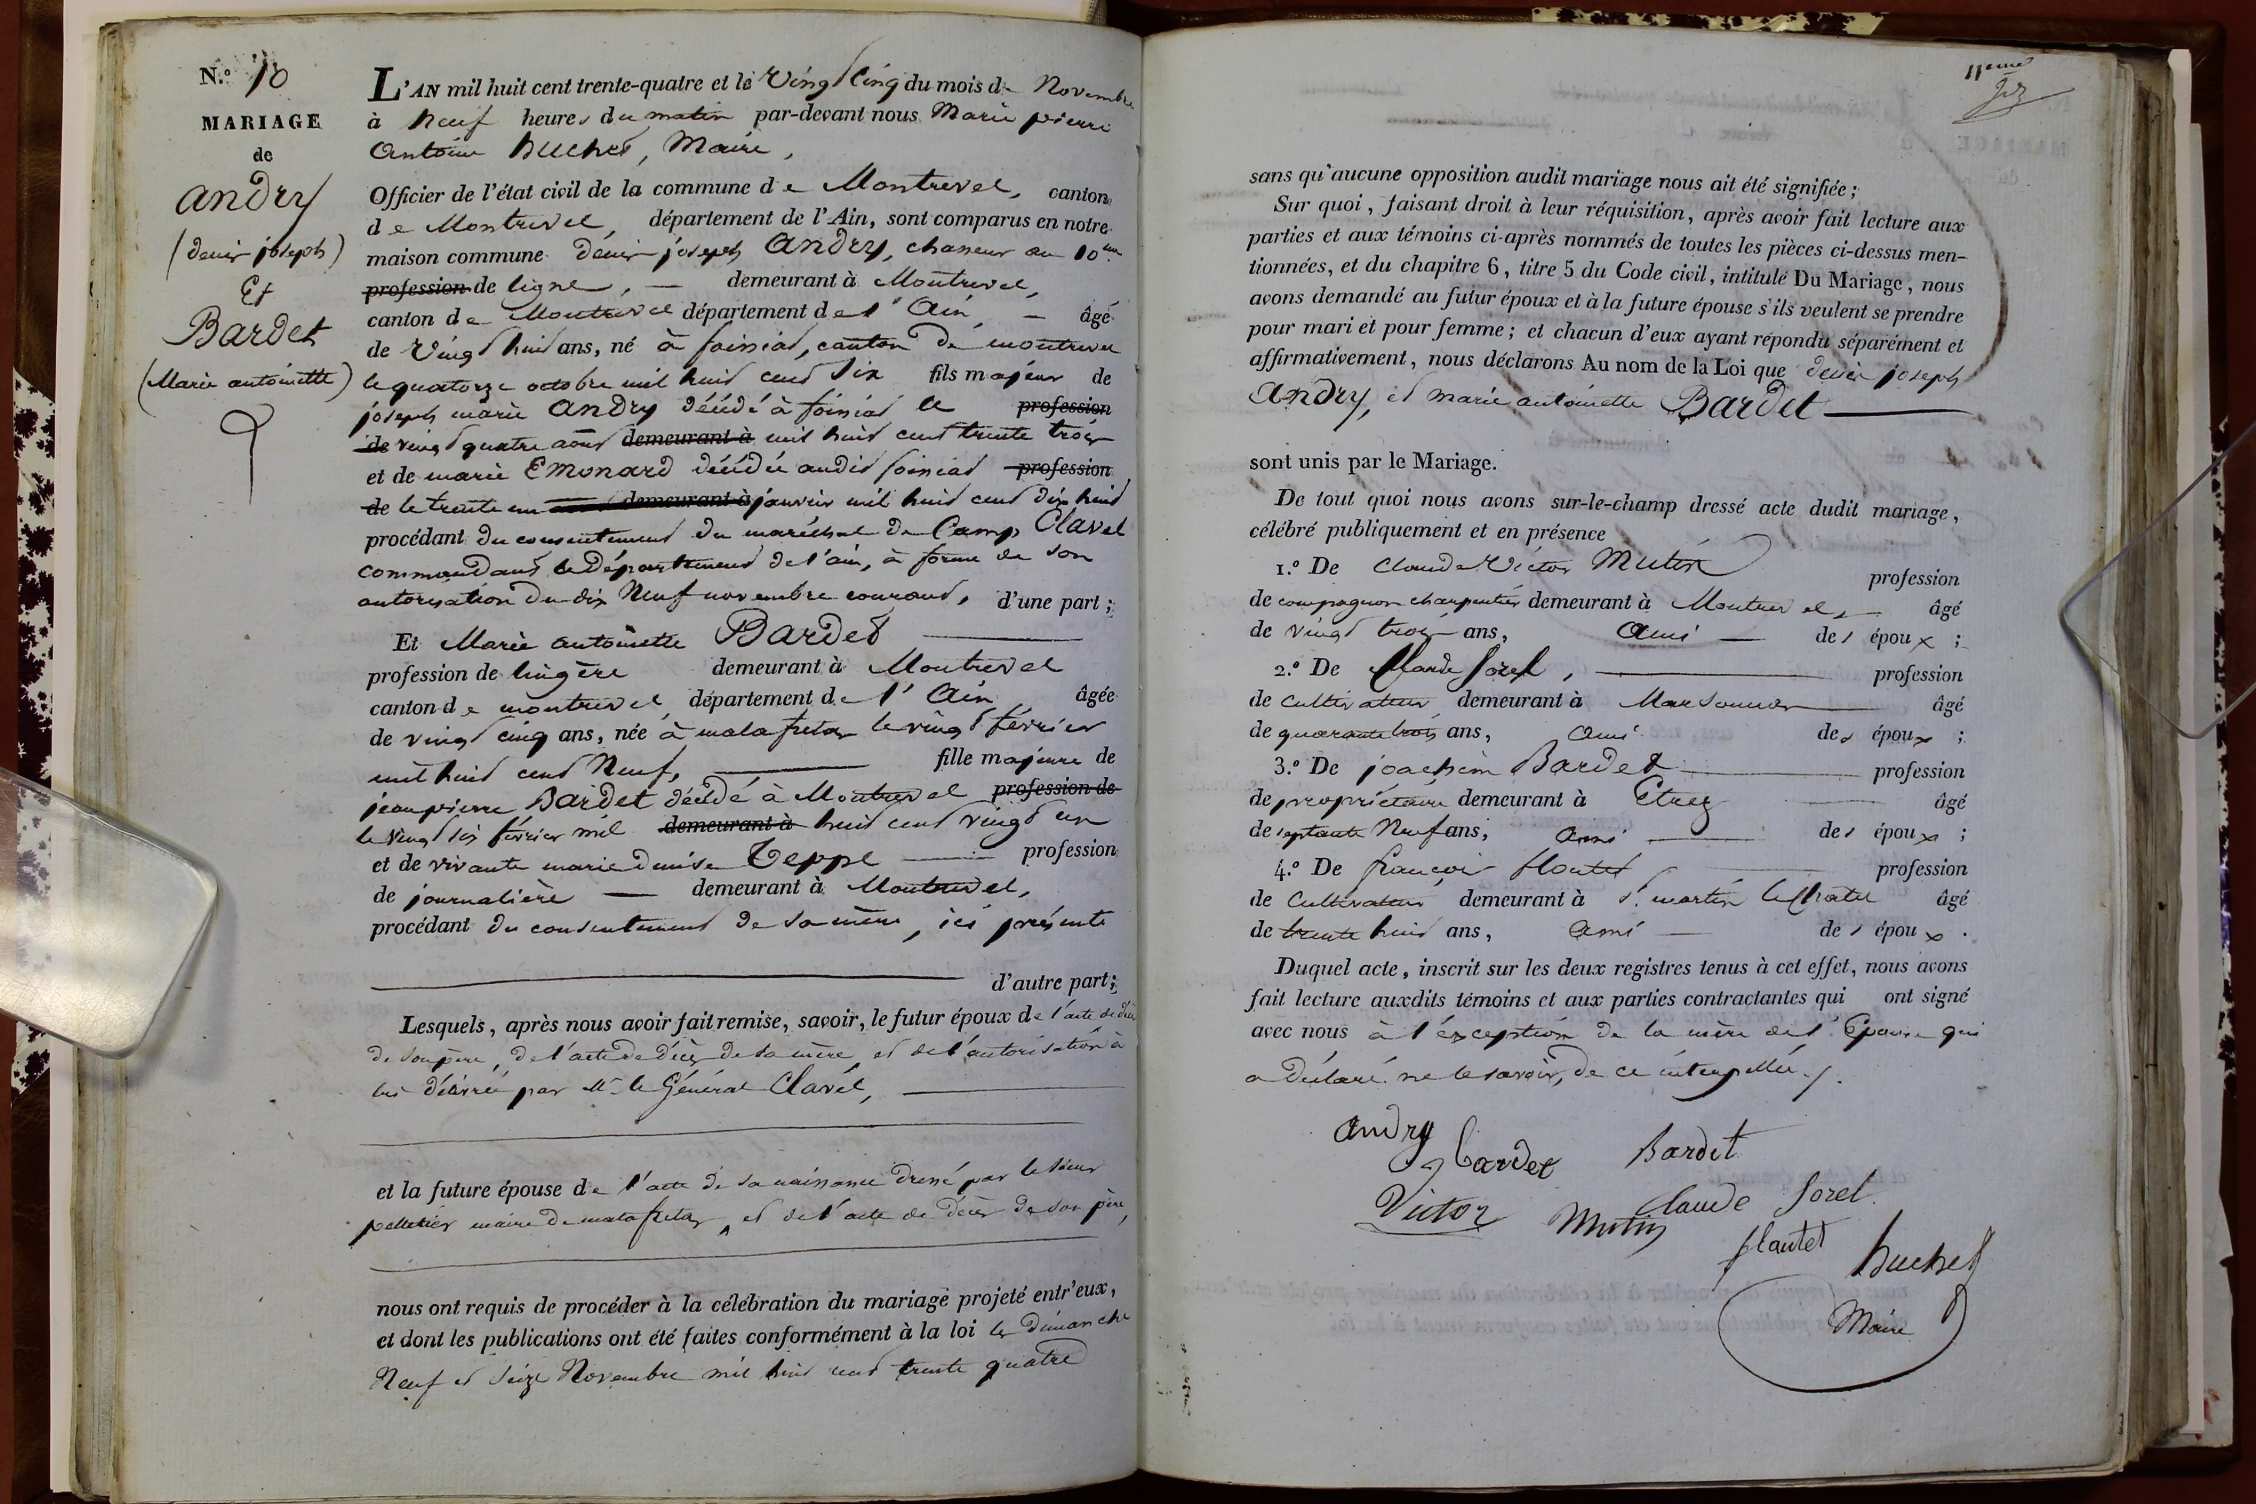 N.º 10
MARIAGE
de
andry
(denis joseph)
Et
Bardet
(Marie antoinette)
L'AN mil huit cent trente-quatre et le Vingt Cinq du mois de Novembre
à Neuf heures du matin par-devant nous Marie pierre
Antoine huchet, Maire,
Officier de l'état civil de la commune de Montrevel, canton
de Montrevel, département de l'Ain, sont comparus en notre
maison commune denis joseph Andry, chasseur au 10me
profession de ligne, demeurant à Montrevel,
canton de Montrevel département de l'Ain âgé
de Vingt huit ans, né à foissiat, canton de montrevel
le quatorze octobre mil huit cent Six fils majeur de
joseph marie Andry décédé à foissiat le profession
de vingt quatre août demeurant à mil huit cent trente trois
et de marie Emonard décédée audit foissiat profession
de le trente un demeurant à janvier mil huit cent dix huit
procédant du consentement du maréchal de Camp Clavel
commandant le département de l'ain, à forme de son
autorisation du dix Neuf novembre courant, d'une part ;
Et Marie antoinette Bardet
profession de lingère demeurant à Montrevel
canton de montrevel département de l'Ain âgée
de vingt cinq ans, née à malafretaz le vingt février
mil huit cent Neuf, fille majeure de
jean pierre Bardet décédé à Montrevel profession de
le Vingt six février mil demeurant à huit cent vingt un
et de vivante marie denise Teppe profession
de journalière demeurant à Montrevel,
procédant du consentement de sa mère, ici présente
d'autre part ;
Lesquels, après nous avoir fait remise, savoir, le futur époux de l'acte de décès
de son père, de l'acte de décès de sa mère, et de l'autorisation à
lui délivrée par Mr le Général Clavel,
et la future épouse de l'acte de sa naissance dressé par le sieur
pelletier maire de malafretaz, et de l'acte de décès de son père,
nous ont requis de procéder à la célébration du mariage projeté entr'eux,
et dont les publications ont été faites conformément à la loi les dimanche
Neuf et Seize Novembre mil huit cent trente quatre
sans qu'aucune opposition audit mariage nous ait été signifiée ;
Sur quoi, faisant droit à leur réquisition, après avoir fait lecture aux
parties et aux témoins ci-après nommés de toutes les pièces ci-dessus men-
tionnées, et du chapitre 6, titre 5 du Code civil, intitulé Du Mariage, nous
avons demandé au futur époux et à la future épouse s'ils veulent se prendre
pour mari et pour femme ; et chacun d'eux ayant répondu séparément et
affirmativement, nous déclarons Au nom de la Loi que denis joseph
Andry, et marie antoinette Bardet
sont unis par le Mariage.
De tout quoi nous avons sur-le-champ dressé acte dudit mariage,
célébré publiquement et en présence
1.º De Claude Victor Mutin profession
de compagnon charpentier demeurant à Montrevel, âgé
de vingt trois ans, Ami des époux ;
2.º De Claude Sorel, profession
de Cultivateur demeurant à Marsonnas âgé
de quarante trois ans, Ami des époux ;
3.º De joachim Bardet profession
de propriétaire demeurant à Etrez âgé
de septante Neuf ans, Ami des époux ;
4.º De françois flautet profession
de Cultivateur demeurant à St. martin le Chatel âgé
de trente huit ans, Ami des époux .
Duquel acte, inscrit sur les deux registres tenus à cet effet, nous avons
fait lecture auxdits témoins et aux parties contractantes qui ont signé
avec nous à l'exception de la mère de l'Epouse qui
a déclaré ne le savoir, de ce interpellée.
Andry
Bardet
j Bardet
Claude Sorel
Victor Mutin
flautet
huchet
Maire